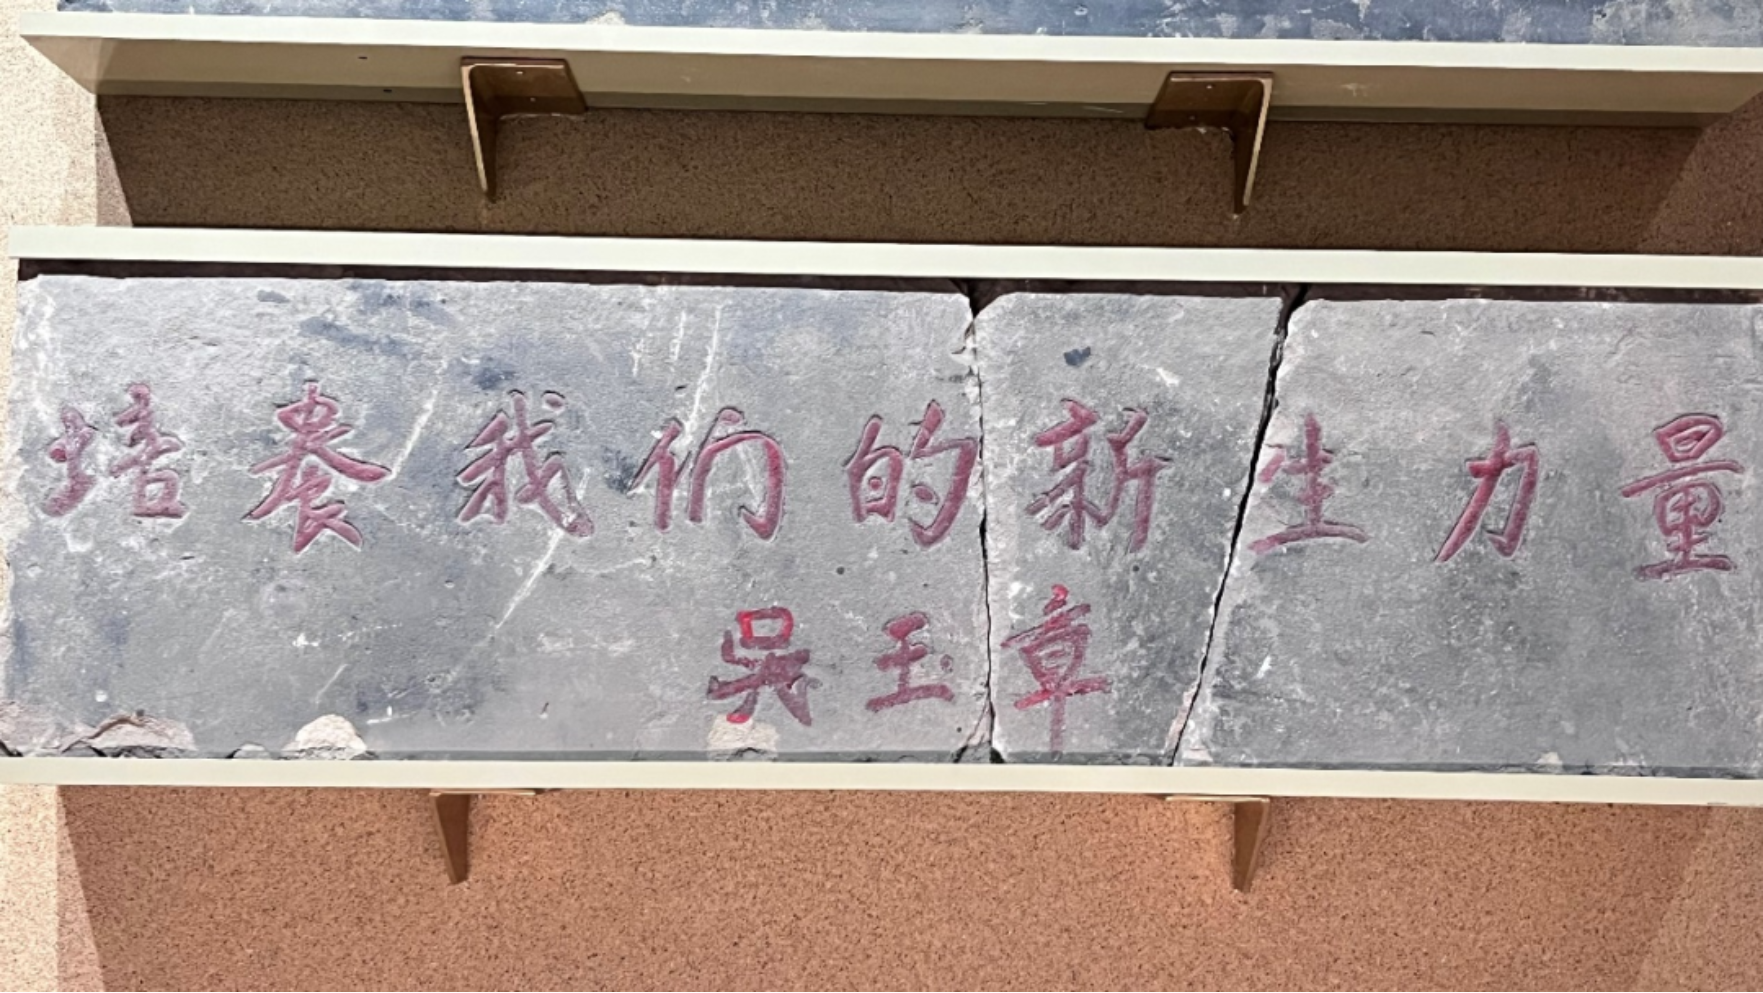 培養我们的新生力量
吳玉章